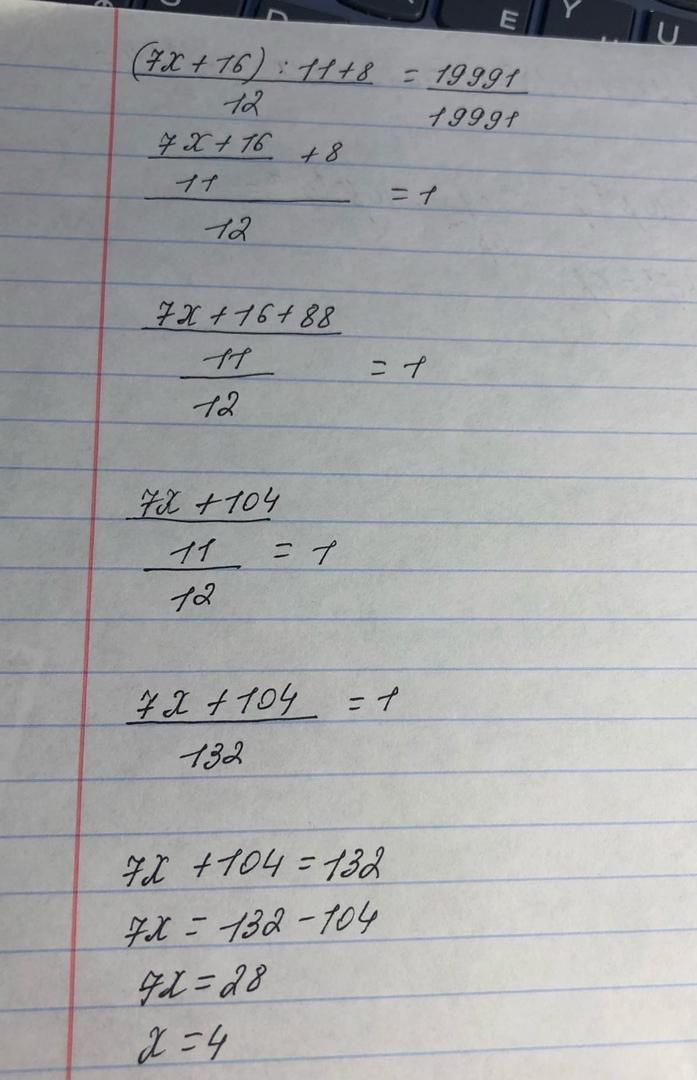 E Y U
(7x+16) : 11+8 = 19991
12 19991
7x+16 +8
11 = 1
12
7x+16+88
11 = 1
12
7x+104
11 = 1
12
7x+104 = 1
132
7x+104=132
7x=132-104
7x=28
x=4